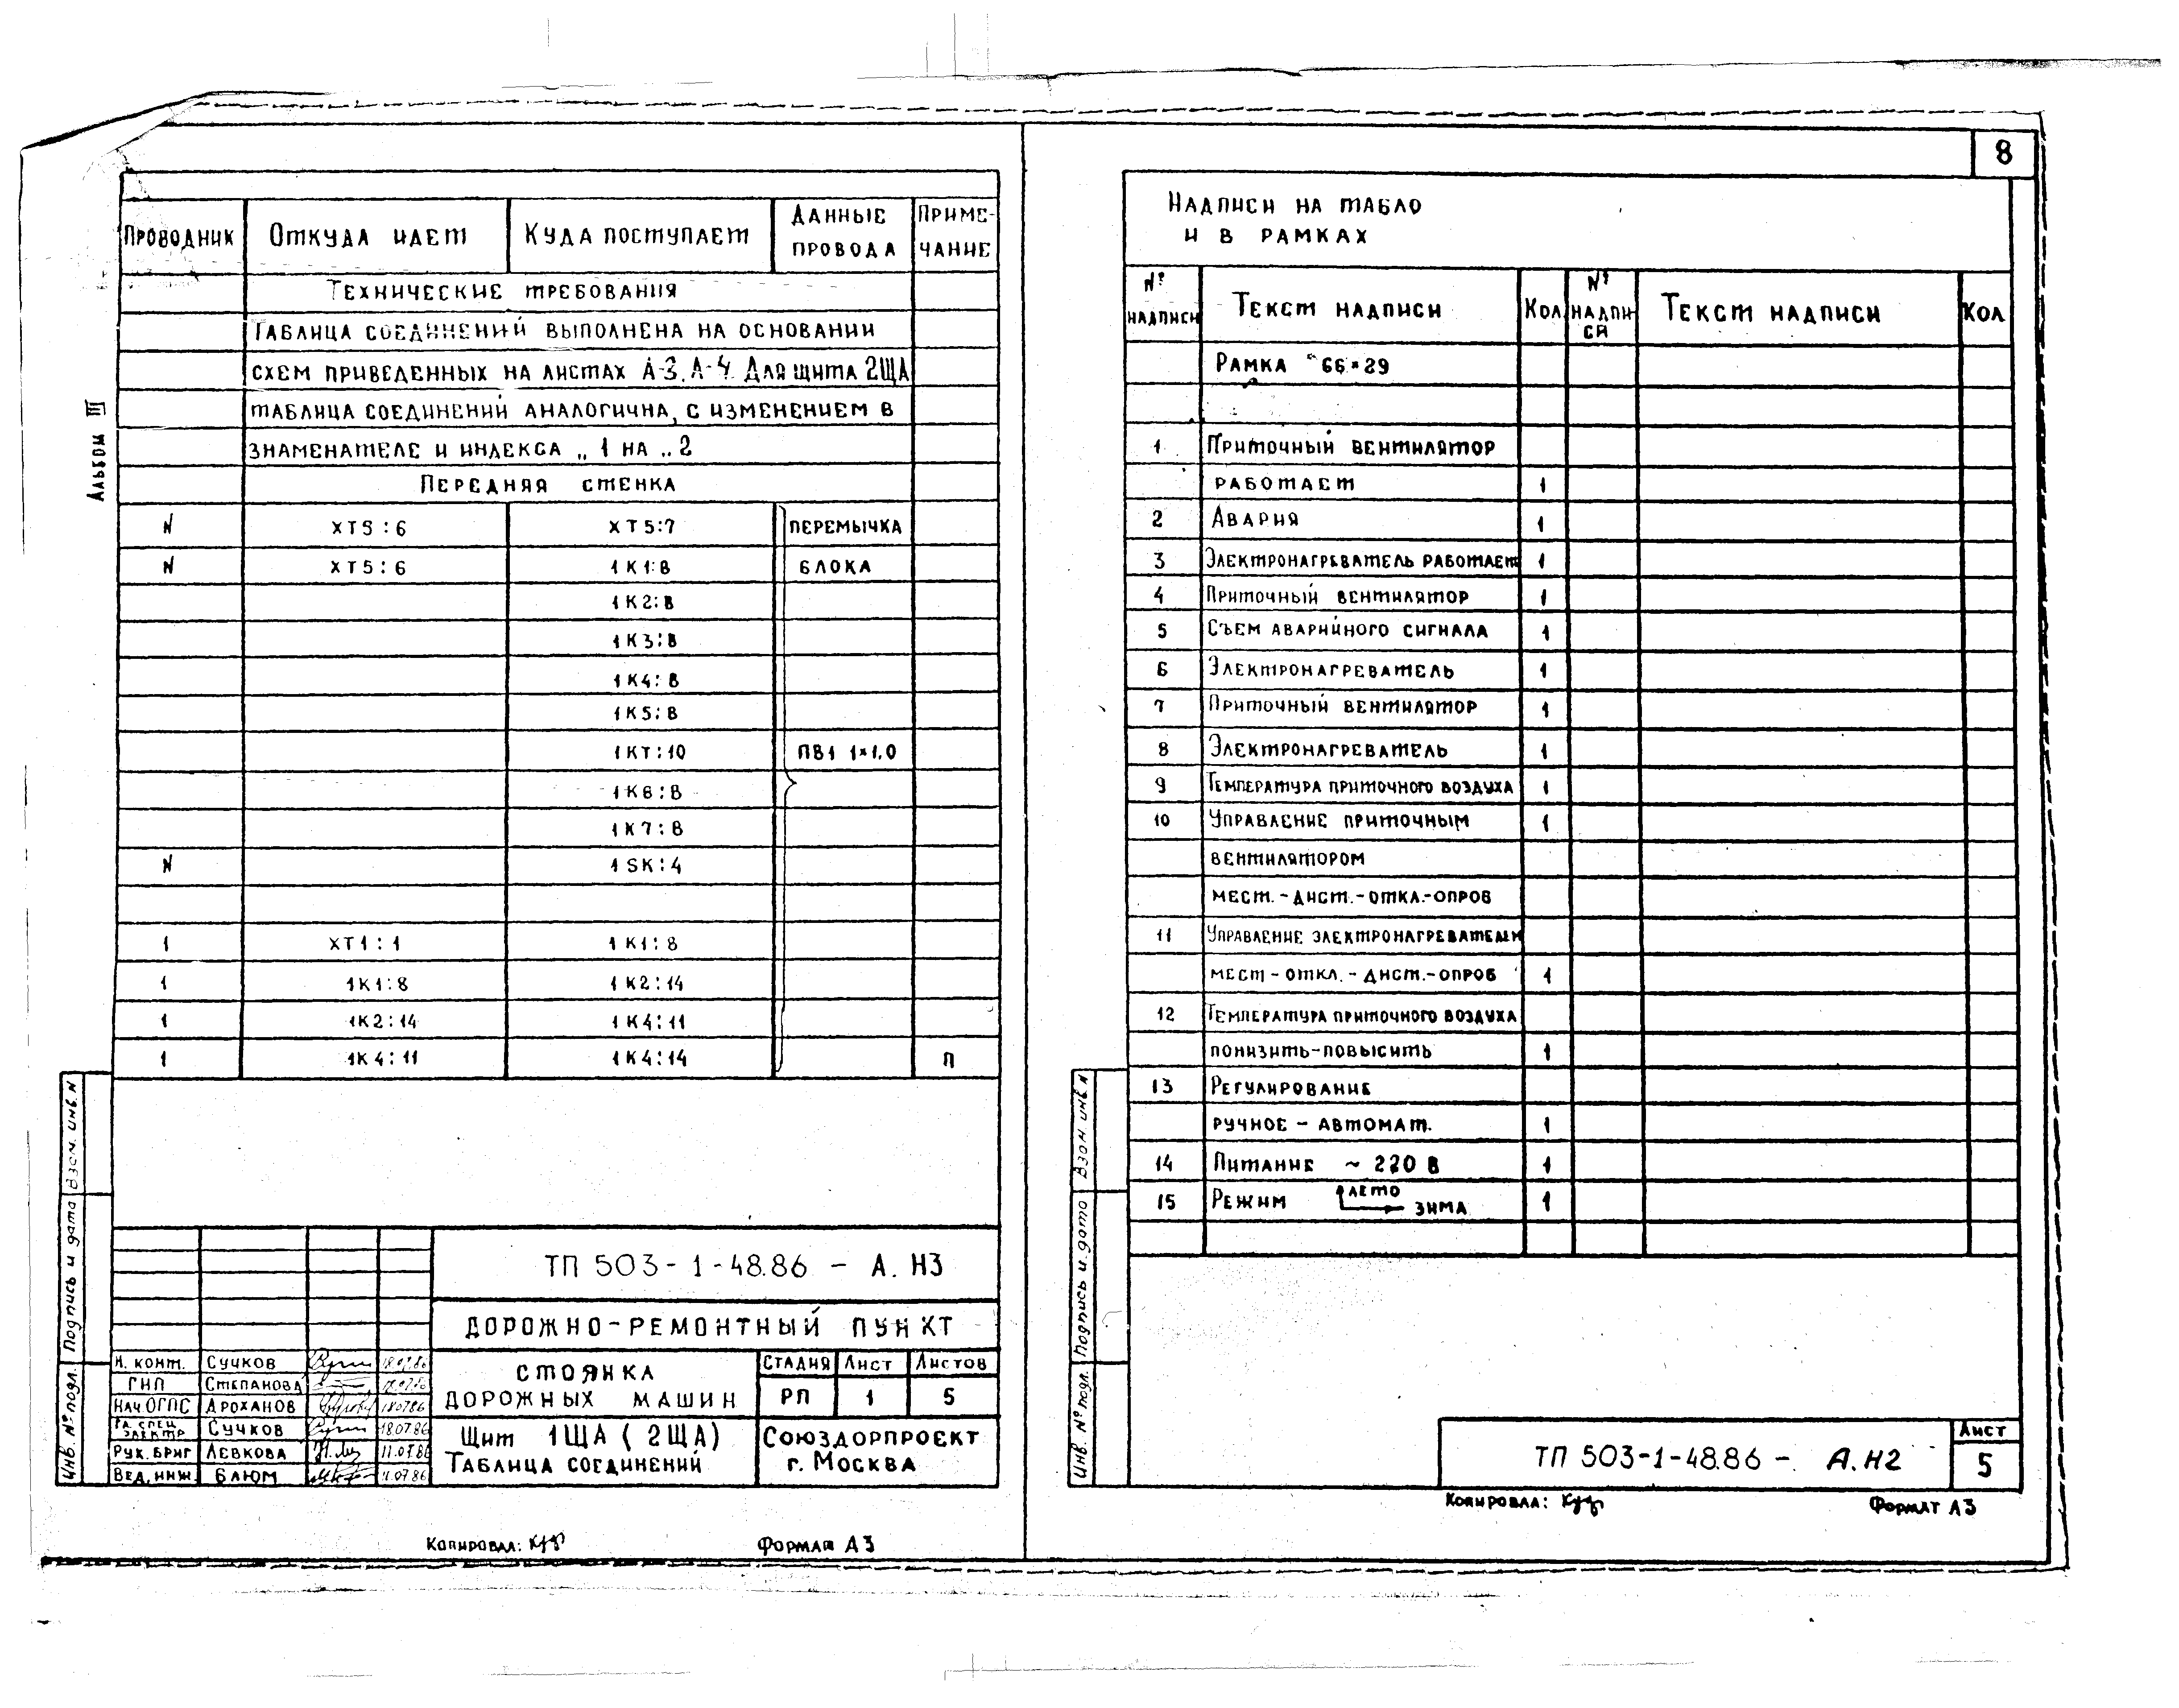 8
Альбом III
Проводник | Откуда идет | Куда поступает | Данные провода | Примечание
Технические требования
Таблица соединений выполнена на основании
схем приведенных на листах А-3, А-4. Для щита 2ЩА
таблица соединений аналогична, с изменением в
знаменателе и индекса „ 1 на „ 2
Передняя стенка
N | XT5:6 | XT5:7 | перемычка
N | XT5:6 | 1K1:В | блока
1K2:В
1K3:В
1K4:В
1K5:В
1KT:10 | ПВ1 1×1,0
1K6:В
1K7:В
N | 1SK:4
1 | XT1:1 | 1K1:8
1 | 1K1:8 | 1K2:14
1 | 1K2:14 | 1K4:11
1 | 1K4:11 | 1K4:14 | П
ТП 503-1-48.86 - А.Н3
Дорожно-ремонтный пункт
Стоянка
дорожных машин
Стадия | Лист | Листов
РП | 1 | 5
Щит 1ЩА (2ЩА)
Таблица соединений
Союздорпроект
г. Москва
Н. конт. Сучков 18.07.86
ГИП Степанова 18.07.86
Нач ОГПС Ароханов 18.07.86
Гл. спец. электр Сучков 18.07.86
Рук. бриг Левкова 11.07.86
Вед. инж. Блюм 11.07.86
Инв. № подл. Подпись и дата Взам. инв. N
Копировала:
Формат А3
Надписи на табло
и в рамках
№ надписи | Текст надписи | Кол | № надписи | Текст надписи | Кол
Рамка 66×29
1 Приточный вентилятор
работает 1
2 Авария 1
3 Электронагреватель работает 1
4 Приточный вентилятор 1
5 Съем аварийного сигнала 1
6 Электронагреватель 1
7 Приточный вентилятор 1
8 Электронагреватель 1
9 Температура приточного воздуха 1
10 Управление приточным 1
вентилятором
мест.-дист.-откл.-опров
11 Управление электронагревателем
мест-откл.-дист.-опроб 1
12 Температура приточного воздуха
понизить-повысить 1
13 Регулирование
ручное - автомат. 1
14 Питание ~ 220 В 1
15 Режим лето зима 1
Инв. № подл. Подпись и дата Взам. инв. N
ТП 503-1-48.86 - А.Н2
Лист
5
Копировала:
Формат А3